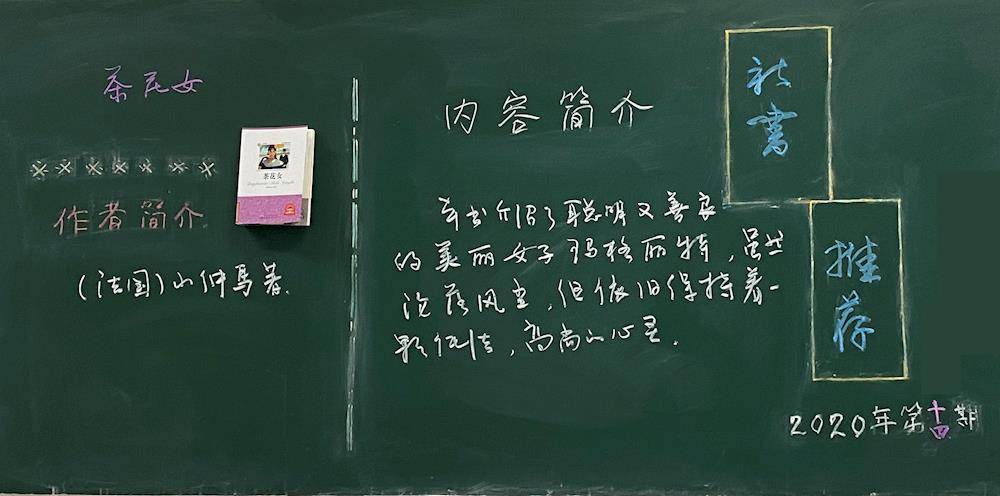 茶花女
作者简介
(法国)小仲馬著.
茶花女
内容简介
本书介绍了聪明又善良
的美丽女子玛格丽特,虽然
沦落风尘,但依旧保持着一
颗纯洁,高尚的心灵.
書
推荐
2020年第十四期